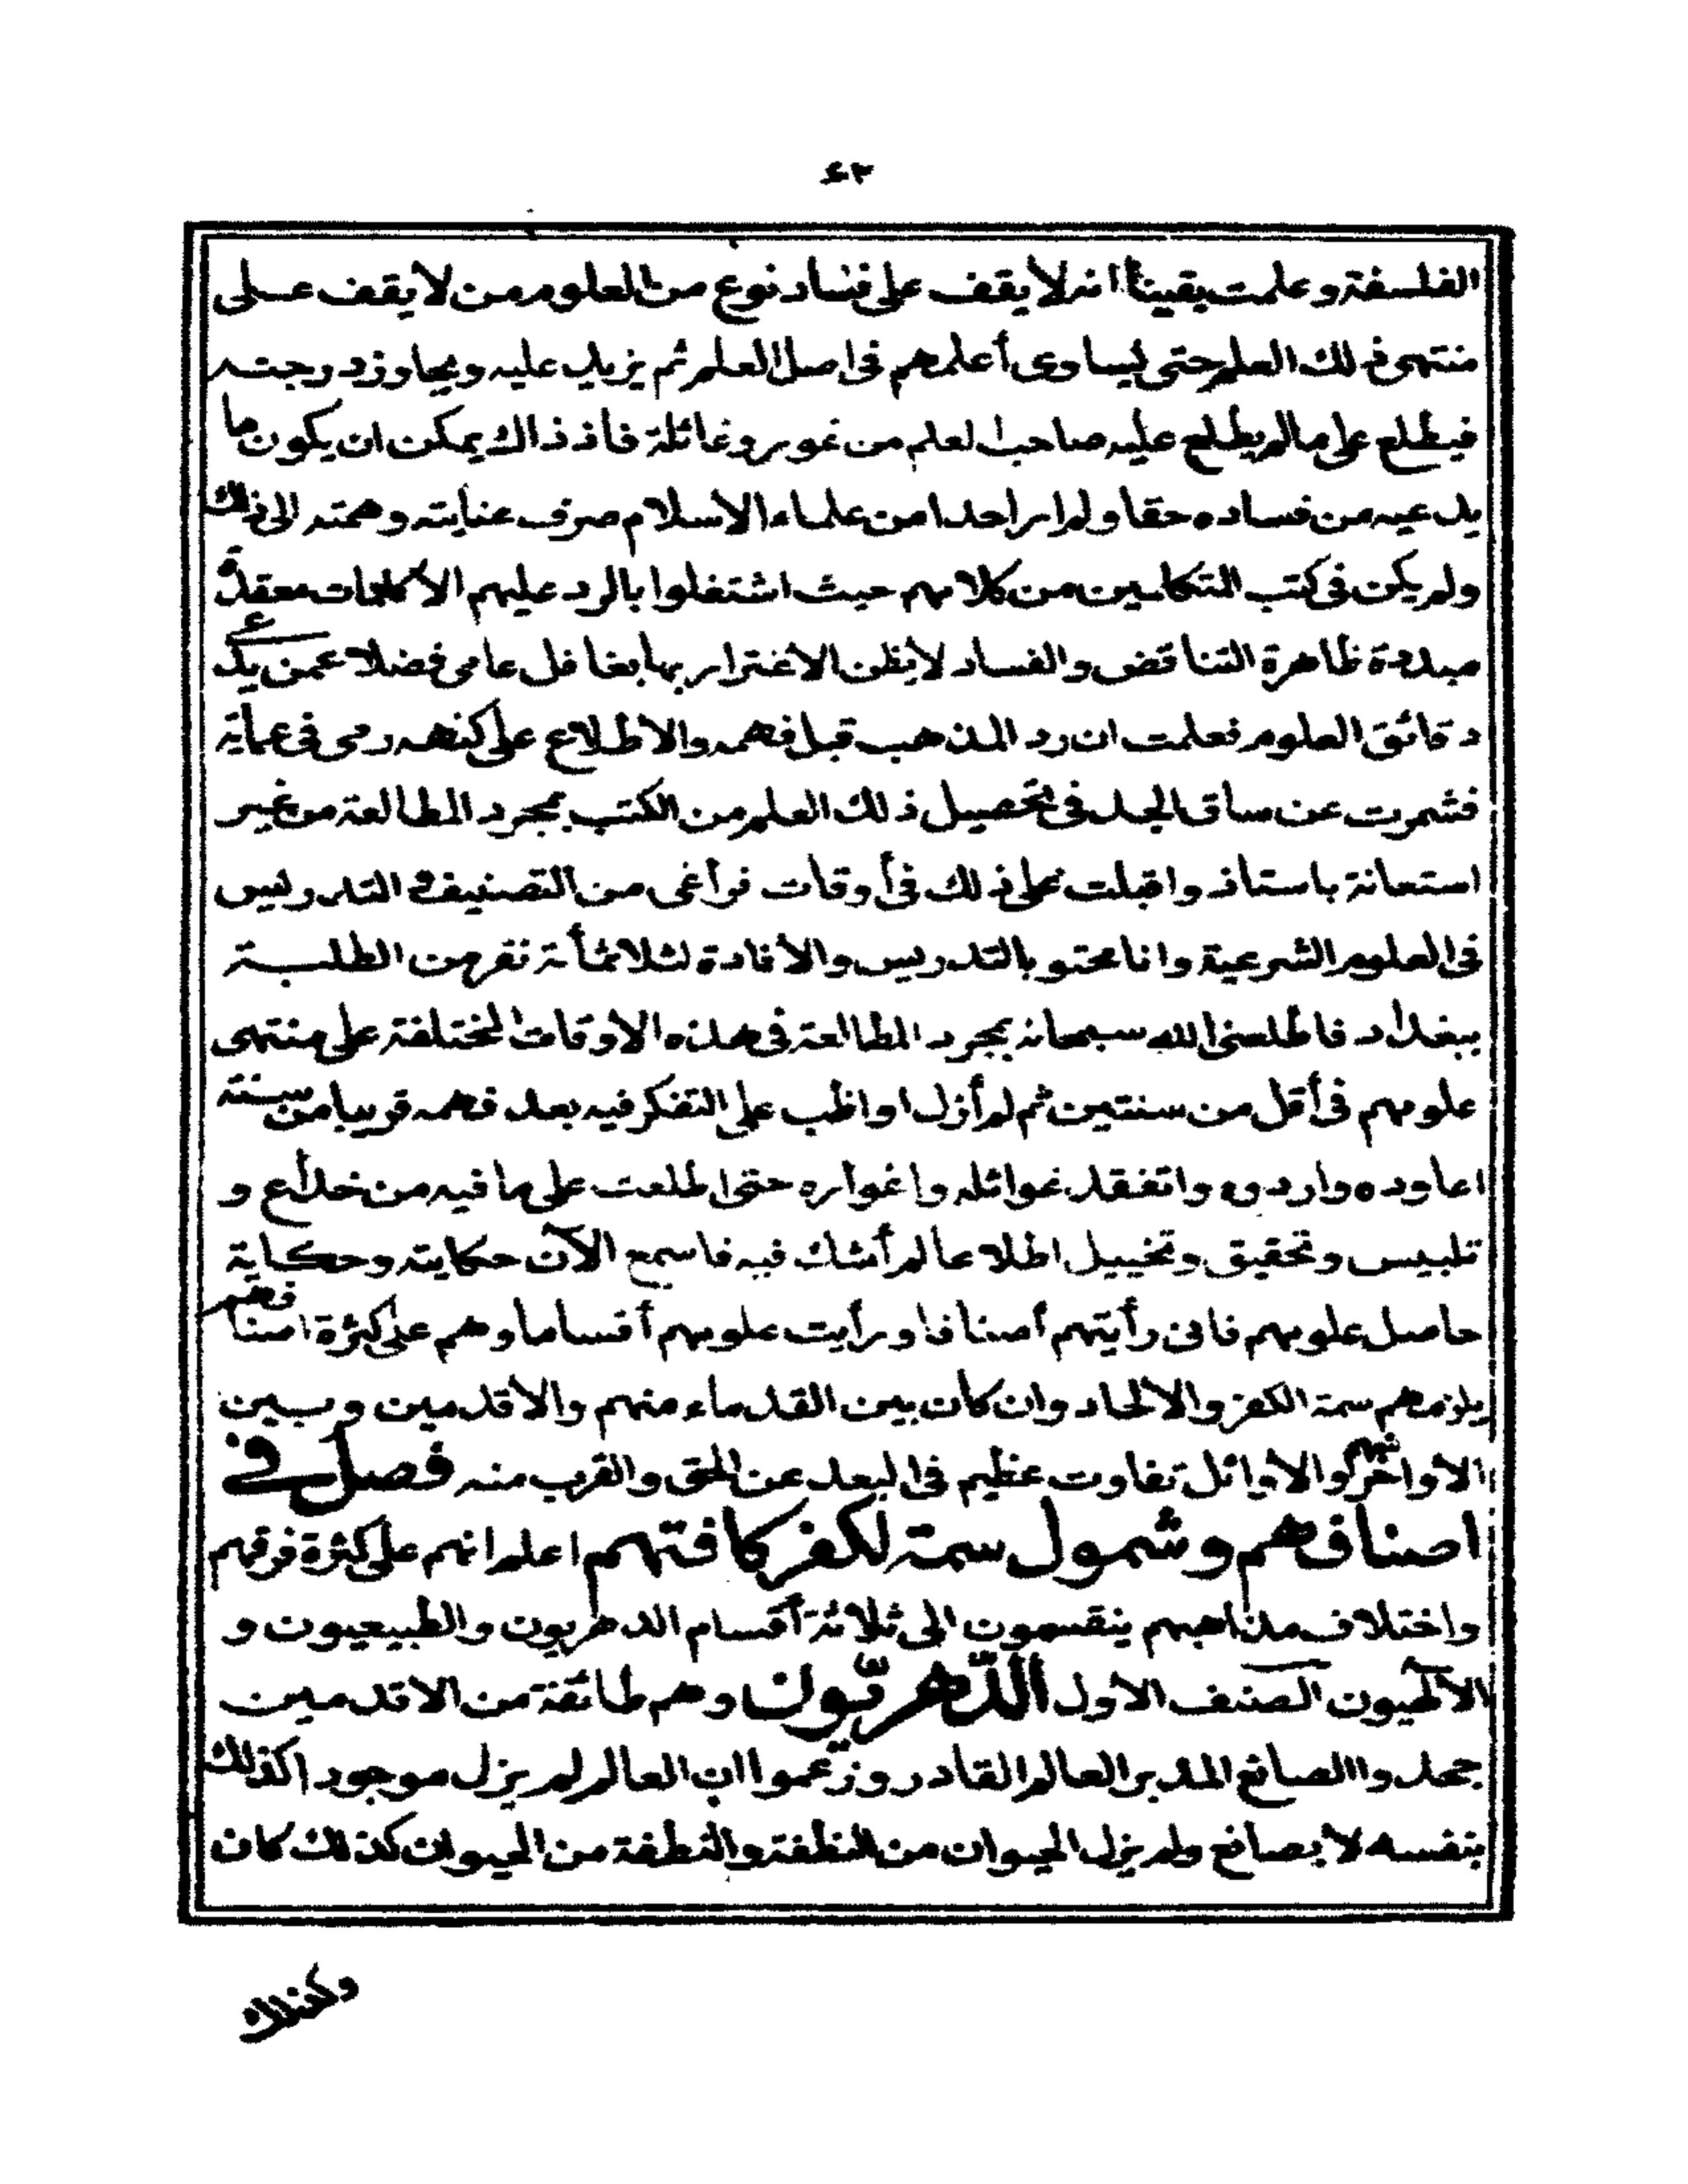 ٤٣
الفلسفة وعلمت يقينا انه لا يقف على فساد نوع من العلوم من لا يقف على
منتهى ذلك العلم حتى ليساوى أعلمهم فى اصل العلم ثم يزيد عليه ويجاوز درجته
فيطلع على ما لم يطلع عليه صاحب العلم من غور وغائلة فاذ ذاك يمكن ان يكون ما
يدعيه من فساده حقا ولم ار احدا من علماء الاسلام صرف عنايته وهمته الى ذلك
ولم يكن فى كتب المتكلمين من كلامهم حيث اشتغلوا بالرد عليهم الا كلمات معقدة
مبددة ظاهرة التناقض والفساد لا يظن الاغترار بها بغافل عامى فضلا عمن يدعى
دقائق العلوم فعلمت ان رد المذهب قبل فهمه والاطلاع على كنهه رمى فى عماية
فشمرت عن ساق الجد فى تحصيل ذلك العلم من الكتب بمجرد المطالعة من غير
استعانة باستاذ واقبلت على ذلك فى أوقات فراغى من التصنيف و التدريس
فى العلوم الشرعية وانا ممحتو بالتدريس والافادة لثلاثمأئة نفر من الطلبة
ببغداد فاطلعنى الله سبحانه بمجرد المطالعة فى هذه الاوقات المختلفة على منتهى
علومهم فى أقل من سنتين ثم لم أزل اواظب على التفكر فيه بعد فهمه قريبا من سنة
اعاوده واردده واتفقد غوائله واغواره حتى اطلعت على ما فيه من خداع و
تلبيس وتحقيق وتخييل اطلاعا لم أشك فيه فاسمع الآن حكايته وحكاية
حاصل علومهم فانى رأيتهم أصنافا ورأيت علومهم أقساما وهم على كثرة اصنافهم
يلزمهم سمة الكفر والالحاد وان كان بين القدماء منهم والاقدمين وبين
الاواخر منهم والاوائل تفاوت عظيم فى البعد عن الحق والقرب منه فصل فى
اصنافهم وشمول سمة الكفر كافتهم اعلم انهم على كثرة فرقهم
واختلاف مذاهبهم ينقسمون الى ثلاثة أقسام الدهريون والطبيعيون و
الآلهيون الصنف الاول الدّهريّون وهم طائفة من الاقدمين
جحدوا الصانع المدبر العالم القادر وزعموا ان العالم لم يزل موجودا كذلك
بنفسه لا بصانع ولم يزل الحيوان من النطفة والنطفة من الحيوان كذلك كان